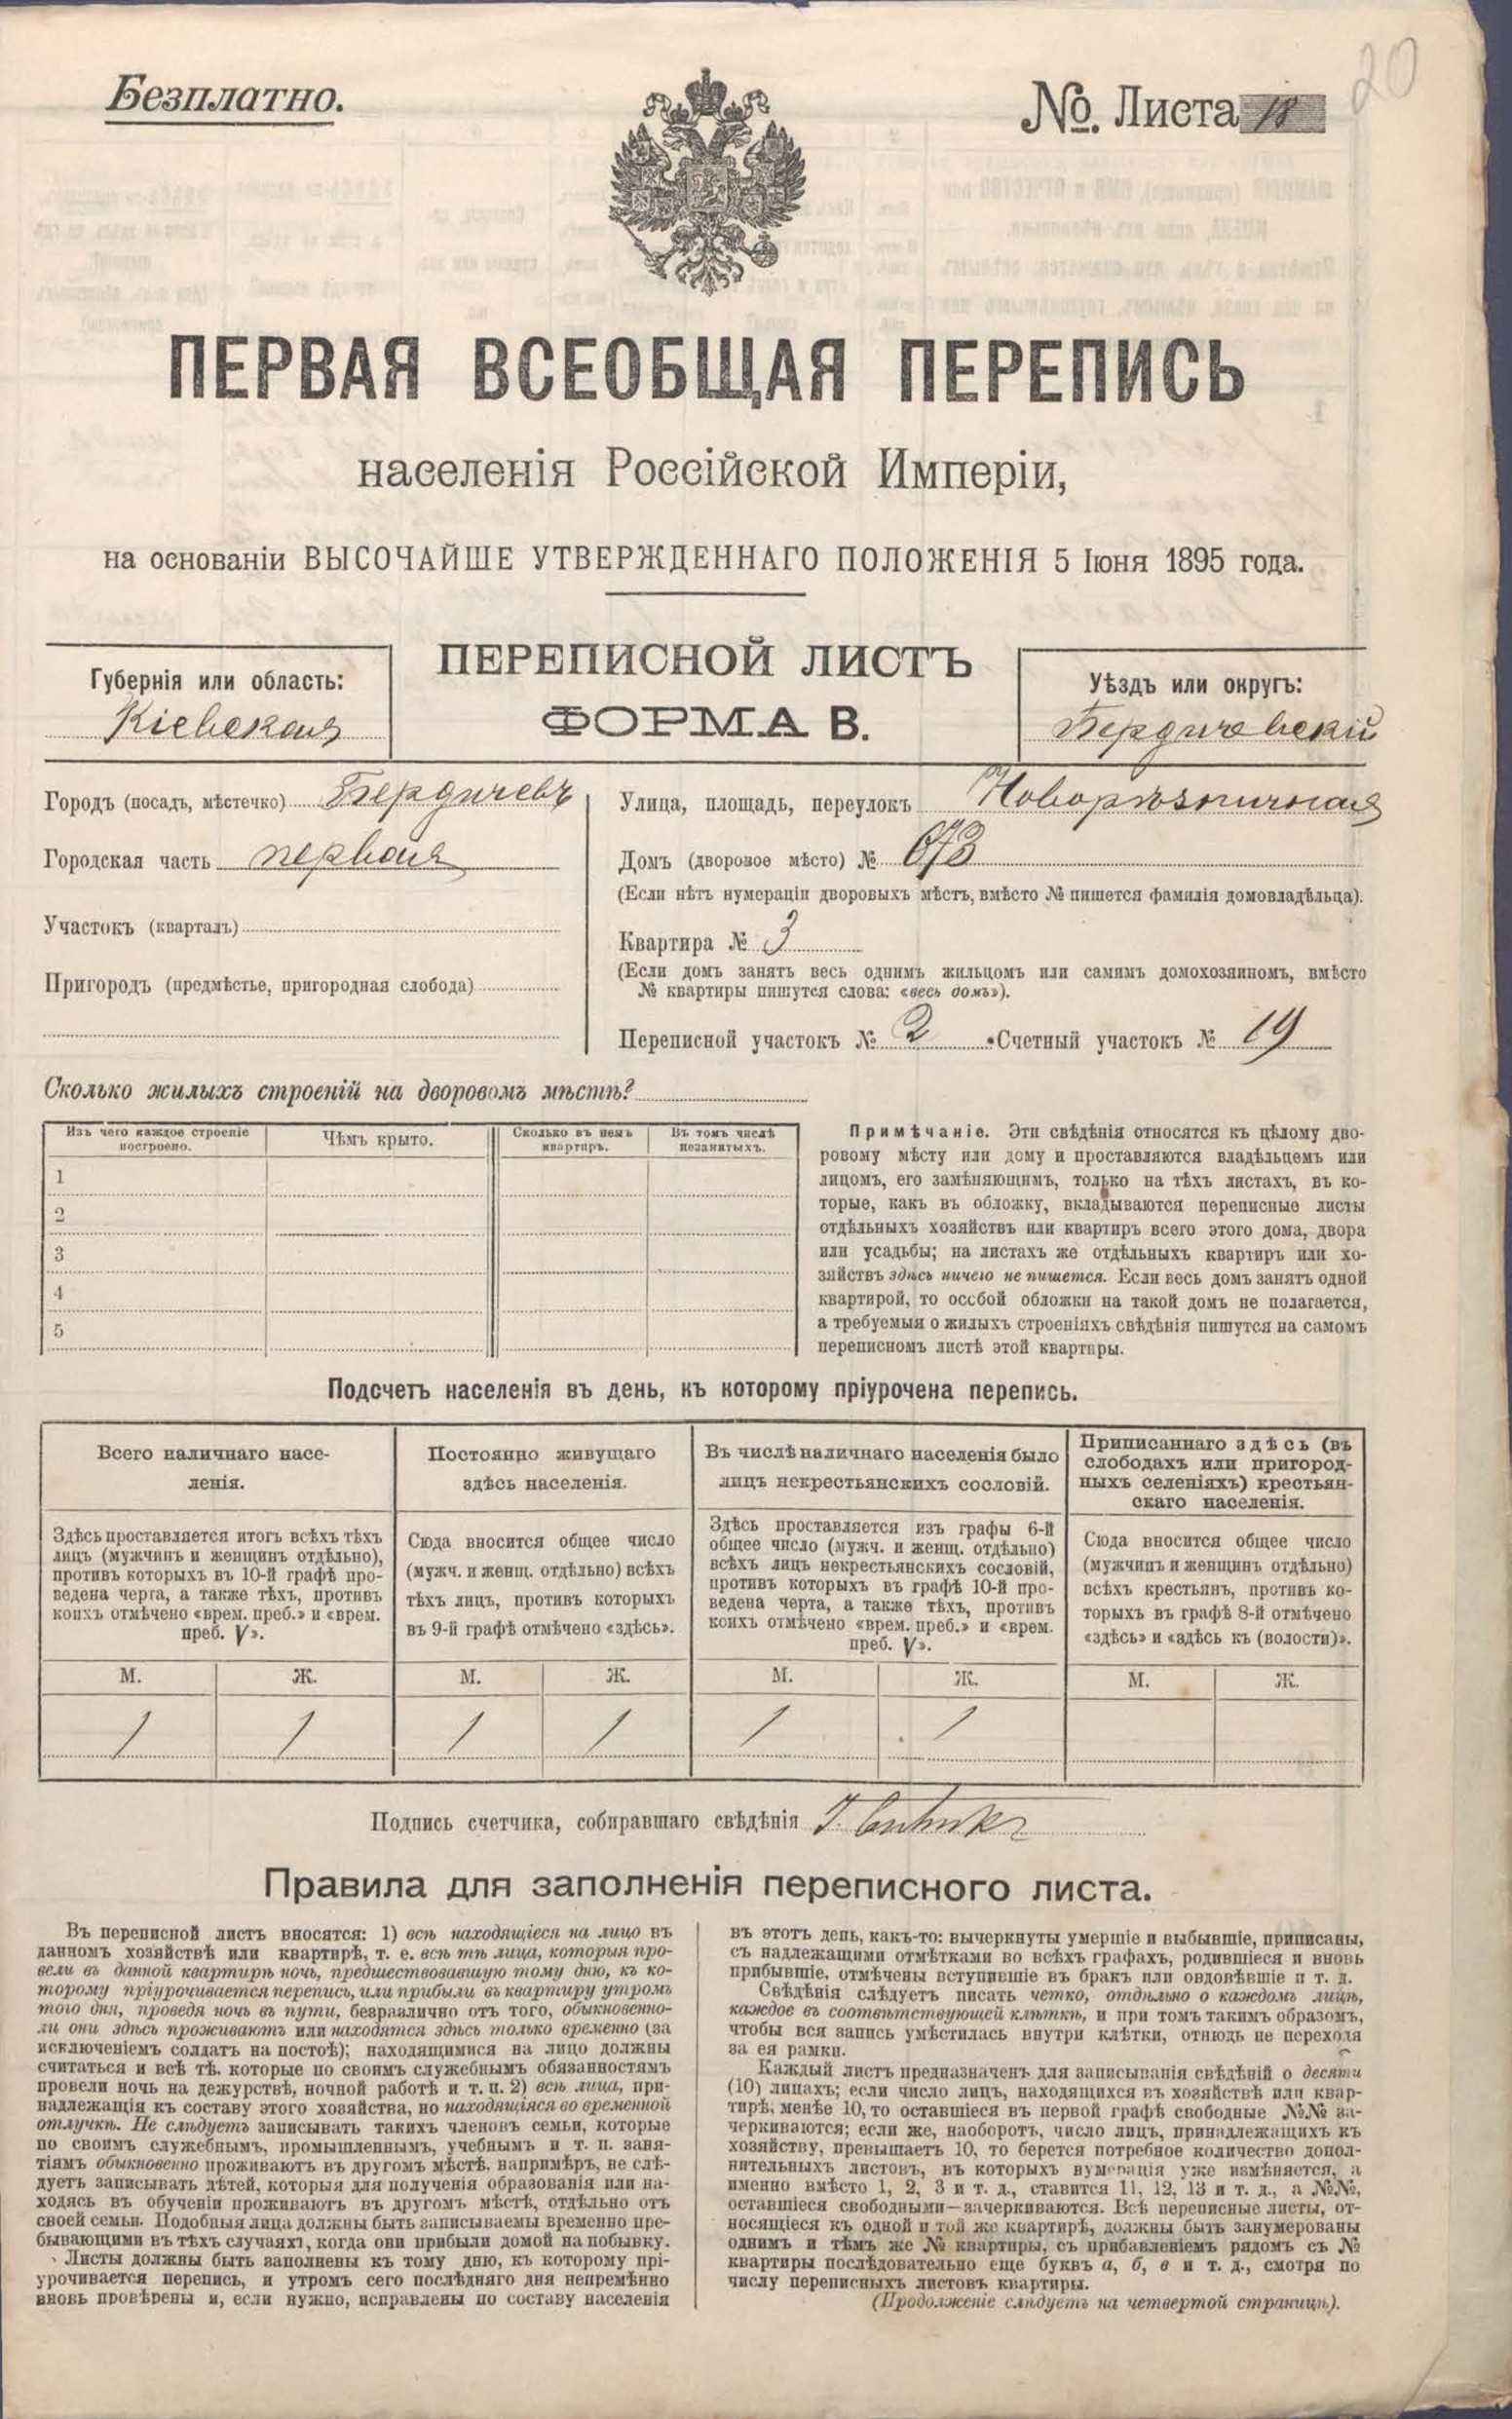 Безплатно.
№. Листа 18
20
ПЕРВАЯ ВСЕОБЩАЯ ПЕРЕПИСЬ
населенія Россійской Имперіи,
на основаніи ВЫСОЧАЙШЕ УТВЕРЖДЕННАГО ПОЛОЖЕНІЯ 5 Іюня 1895 года.
ПЕРЕПИСНОЙ ЛИСТЪ
ФОРМА В.
Губернія или область:
Кіевская
Уѣздъ или округъ:
Бердичевскій
Городъ (посадъ, мѣстечко) Бердичевъ
Городская часть первая
Участокъ (кварталъ)
Пригородъ (предмѣстье, пригородная слобода)
Улица, площадь, переулокъ Новорѣзничная
Домъ (дворовое мѣсто) № 673
(Если нѣтъ нумераціи дворовыхъ мѣстъ, вмѣсто № пишется фамилія домовладѣльца).
Квартира № 3
(Если домъ занятъ весь однимъ жильцомъ или самимъ домохозяиномъ, вмѣсто
№ квартиры пишутся слова: «весь домъ»).
Переписной участокъ № 2 Счетный участокъ № 19
Сколько жилыхъ строеній на дворовомъ мѣстѣ?
Изъ чего каждое строеніе
построено.
Чѣмъ крыто.
Сколько въ немъ
квартиръ.
Въ томъ числѣ
незанятыхъ.
1
2
3
4
5
Примѣчаніе. Эти свѣдѣнія относятся къ цѣлому дво-
ровому мѣсту или дому и проставляются владѣльцемъ или
лицомъ, его замѣняющимъ, только на тѣхъ листахъ, въ ко-
торые, какъ въ обложку, вкладываются переписные листы
отдѣльныхъ хозяйствъ или квартиръ всего этого дома, двора
или усадьбы; на листахъ же отдѣльныхъ квартиръ или хо-
зяйствъ здѣсь ничего не пишется. Если весь домъ занятъ одной
квартирой, то особой обложки на такой домъ не полагается,
а требуемыя о жилыхъ строеніяхъ свѣдѣнія пишутся на самомъ
переписномъ листѣ этой квартиры.
Подсчетъ населенія въ день, къ которому пріурочена перепись.
Всего наличнаго насе-
ленія.
Здѣсь проставляется итогъ всѣхъ тѣхъ
лицъ (мужчинъ и женщинъ отдѣльно),
противъ которыхъ въ 10-й графѣ про-
ведена черта, а также тѣхъ, противъ
коихъ отмѣчено «врем. преб.» и «врем.
преб. V».
М. Ж.
1 1
Постоянно живущаго
здѣсь населенія.
Сюда вносится общее число
(мужч. и женщ. отдѣльно) всѣхъ
тѣхъ лицъ, противъ которыхъ
въ 9-й графѣ отмѣчено «здѣсь».
М. Ж.
1 1
Въ числѣ наличнаго населенія было
лицъ некрестьянскихъ сословій.
Здѣсь проставляется изъ графы 6-й
общее число (мужч. и женщ. отдѣльно)
всѣхъ лицъ некрестьянскихъ сословій,
противъ которыхъ въ графѣ 10-й про-
ведена черта, а также тѣхъ, противъ
коихъ отмѣчено «врем. преб.» и «врем.
преб. V».
М. Ж.
1 1
Приписаннаго здѣсь (въ
слободахъ или пригород-
ныхъ селеніяхъ) крестьян-
скаго населенія.
Сюда вносится общее число
(мужчинъ и женщинъ отдѣльно)
всѣхъ крестьянъ, противъ ко-
торыхъ въ графѣ 8-й отмѣчено
«здѣсь» и «здѣсь къ (волости)».
М. Ж.
Подпись счетчика, собиравшаго свѣдѣнія
Правила для заполненія переписного листа.
Въ переписной листъ вносятся: 1) всѣ находящіеся на лицо въ
данномъ хозяйствѣ или квартирѣ, т. е. всѣ тѣ лица, которыя про-
вели въ данной квартирѣ ночь, предшествовавшую тому дню, къ ко-
торому пріурочивается перепись, или прибыли въ квартиру утромъ
того дня, проведя ночь въ пути, безразлично отъ того, обыкновенно-
ли они здѣсь проживаютъ или находятся здѣсь только временно (за
исключеніемъ солдатъ на постоѣ); находящимися на лицо должны
считаться и всѣ тѣ, которые по своимъ служебнымъ обязанностямъ
провели ночь на дежурствѣ, ночной работѣ и т. п. 2) всѣ лица, при-
надлежащія къ составу этого хозяйства, но находящіяся во временной
отлучкѣ. Не слѣдуетъ записывать такихъ членовъ семьи, которые
по своимъ служебнымъ, промышленнымъ, учебнымъ и т. п. заня-
тіямъ обыкновенно проживаютъ въ другомъ мѣстѣ, напримѣръ, не слѣ-
дуетъ записывать дѣтей, которыя для полученія образованія или на-
ходясь въ обученіи проживаютъ въ другомъ мѣстѣ, отдѣльно отъ
своей семьи. Подобныя лица должны быть записываемы временно пре-
бывающими въ тѣхъ случаяхъ, когда они прибыли домой на побывку.
Листы должны быть заполнены къ тому дню, къ которому прі-
урочивается перепись, и утромъ сего послѣдняго дня непремѣнно
вновь провѣрены и, если нужно, исправлены по составу населенія
въ этотъ день, какъ-то: вычеркнуты умершіе и выбывшіе, приписаны,
съ надлежащими отмѣтками во всѣхъ графахъ, родившіеся и вновь
прибывшіе, отмѣчены вступившіе въ бракъ или овдовѣвшіе и т. д.
Свѣдѣнія слѣдуетъ писать четко, отдѣльно о каждомъ лицѣ,
каждое въ соотвѣтствующей клѣткѣ, и при томъ такимъ образомъ,
чтобы вся запись умѣстилась внутри клѣтки, отнюдь не переходя
за ея рамки.
Каждый листъ предназначенъ для записыванія свѣдѣній о десяти
(10) лицахъ; если число лицъ, находящихся въ хозяйствѣ или квар-
тирѣ, менѣе 10, то оставшіеся въ первой графѣ свободные №№ за-
черкиваются; если же, наоборотъ, число лицъ, принадлежащихъ къ
хозяйству, превышаетъ 10, то берется потребное количество допол-
нительныхъ листовъ, въ которыхъ нумерація уже измѣняется, а
именно вмѣсто 1, 2, 3 и т. д., ставится 11, 12, 13 и т. д., а №№,
оставшіеся свободными—зачеркиваются. Всѣ переписные листы, от-
носящіеся къ одной и той же квартирѣ, должны быть занумерованы
однимъ и тѣмъ же № квартиры, съ прибавленіемъ рядомъ съ №
квартиры послѣдовательно еще буквъ а, б, в и т. д., смотря по
числу переписныхъ листовъ квартиры.
(Продолженіе слѣдуетъ на четвертой страницѣ).